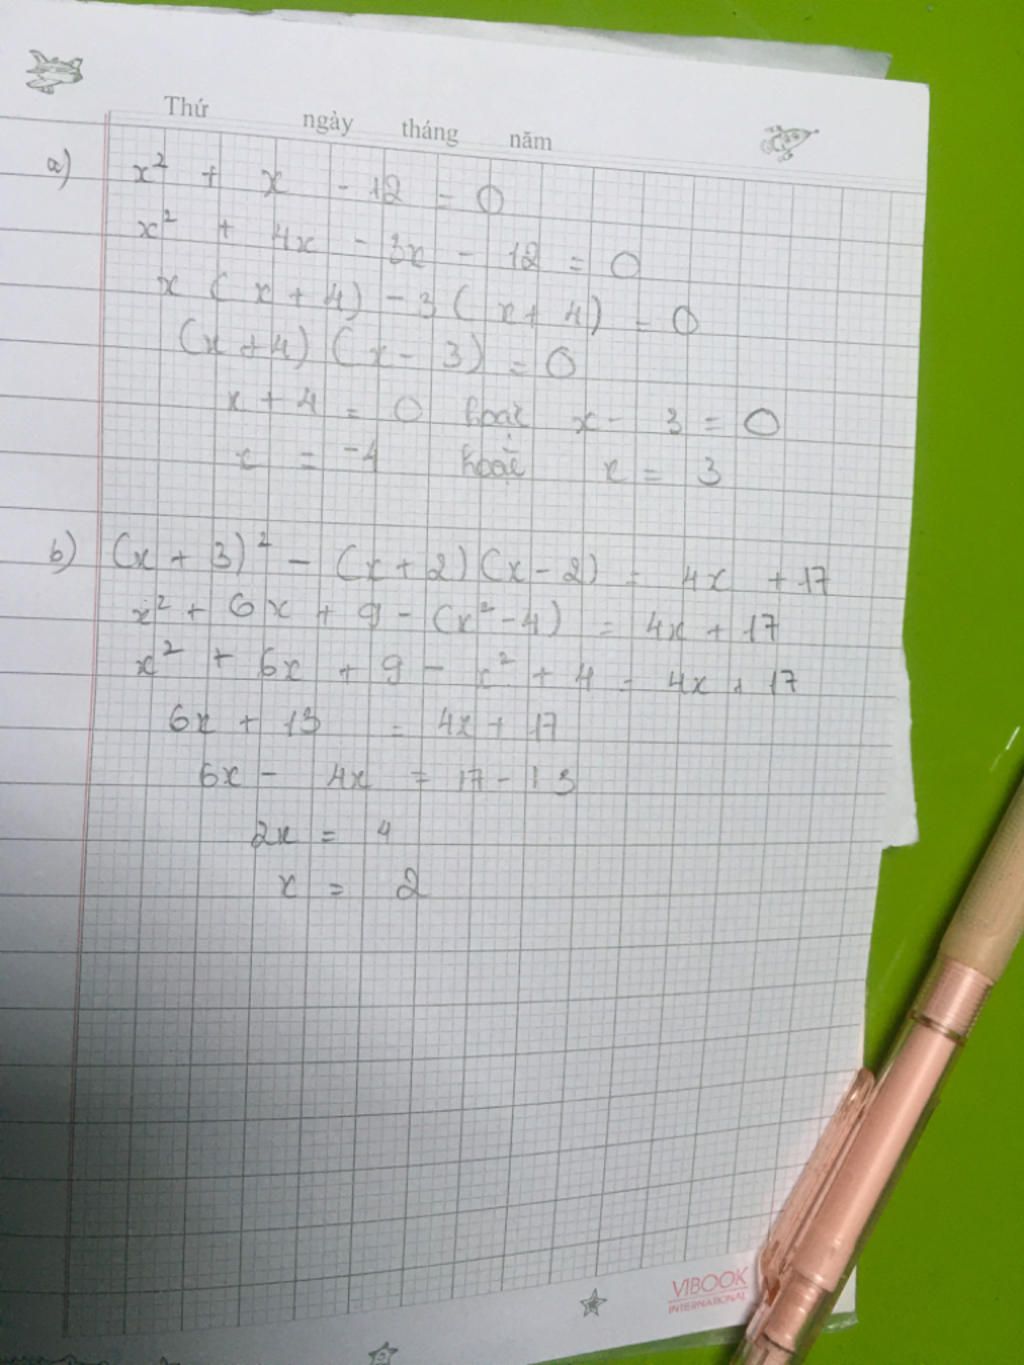 Thứ ngày tháng năm
a) x² + x - 12 = 0
x² + 4x - 3x - 12 = 0
x (x + 4) - 3 (x + 4) = 0
(x + 4) (x - 3) = 0
x + 4 = 0 hoặc x - 3 = 0
x = -4 hoặc x = 3
b) (x + 3)² - (x + 2) (x - 2) = 4x + 17
x² + 6x + 9 - (x² - 4) = 4x + 17
x² + 6x + 9 - x² + 4 = 4x + 17
6x + 13 = 4x + 17
6x - 4x = 17 - 13
2x = 4
x = 2
VIBOOK
INTERNATIONAL